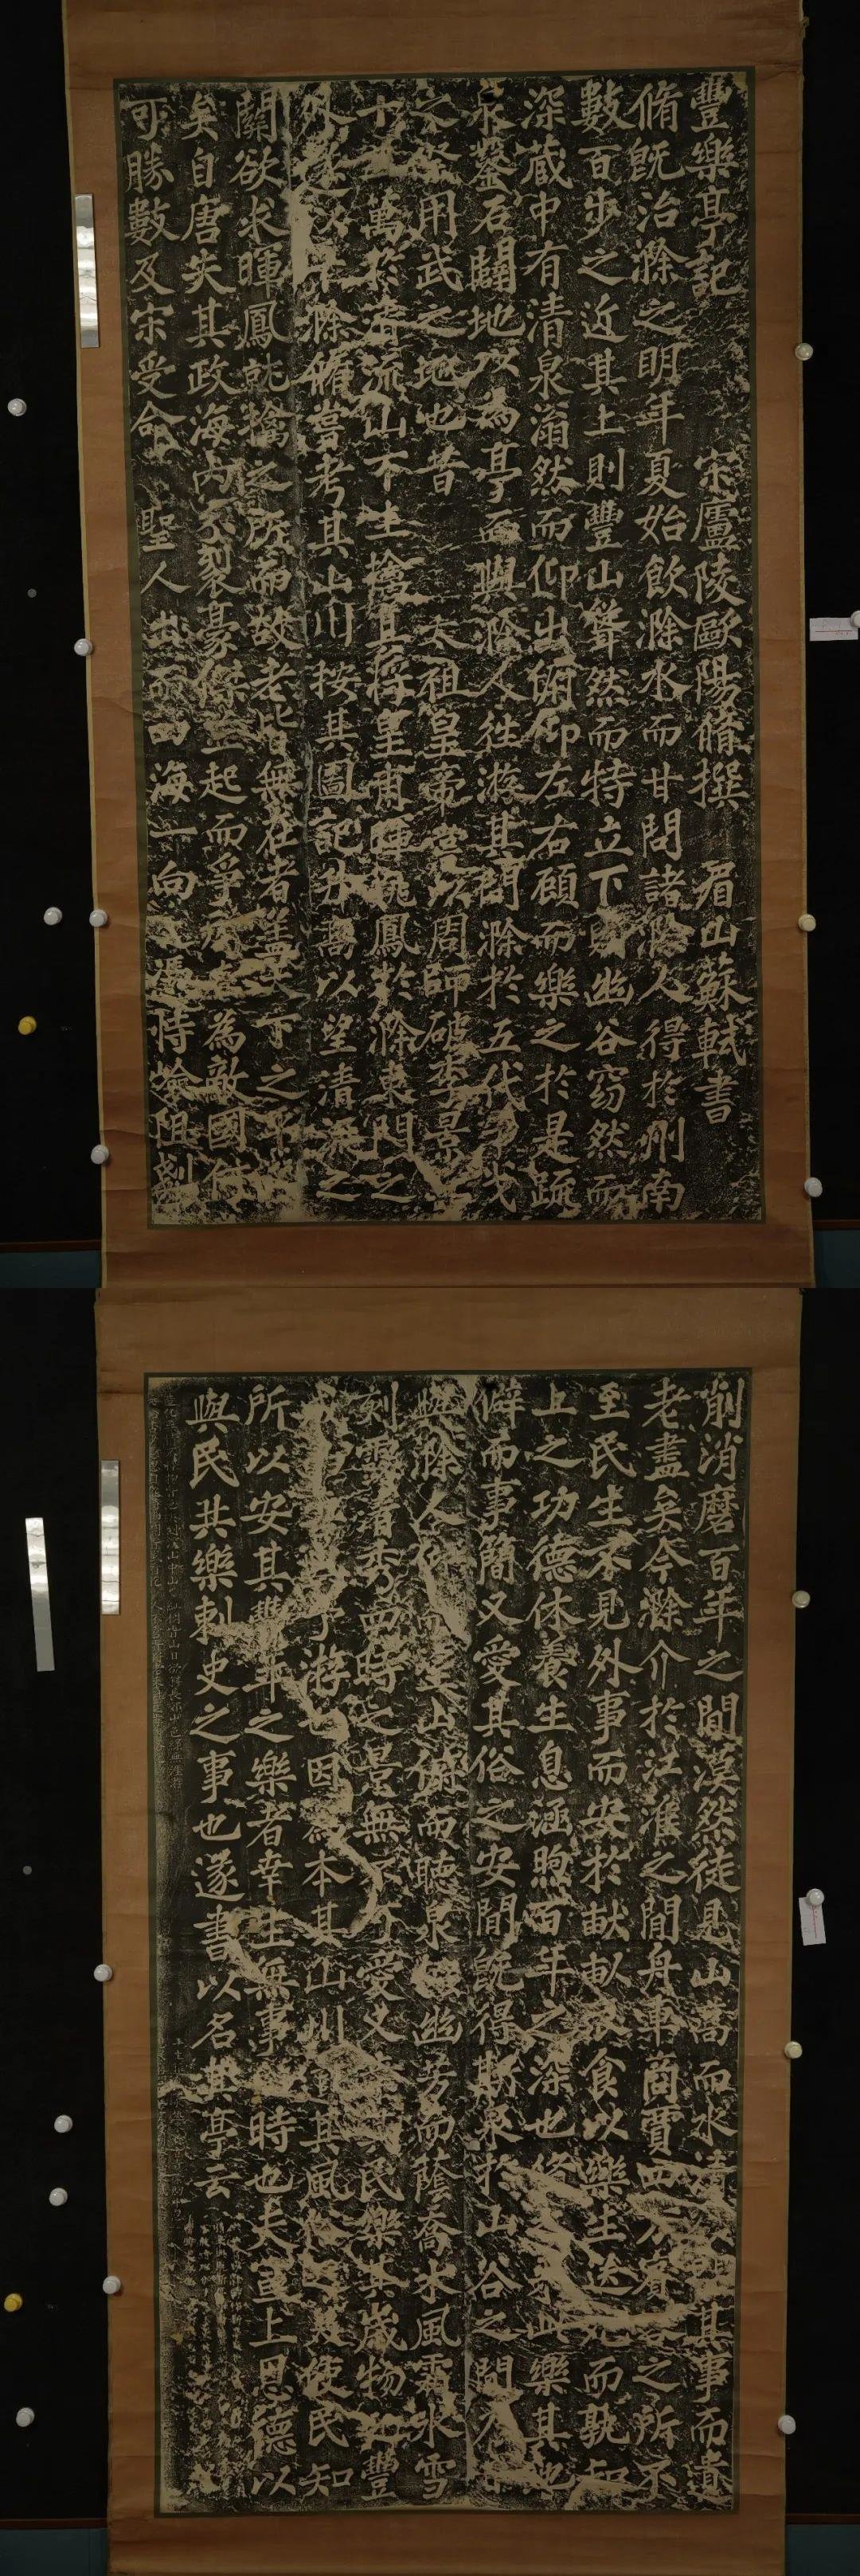 豐樂亭記 宋廬陵歐陽脩撰 眉山蘇軾書
脩既治滁之明年夏始飲滁水而甘問諸滁人得於州南
數百步之近其上則豐山聳然而特立下則幽谷窈然而
深藏中有清泉滃然而仰出俯仰左右顧而樂之於是疏
泉鑿石闢地以為亭而與滁人往游其間滁於五代干戈
之際用武之地也昔 太祖皇帝嘗以周師破李景
十五萬於清流山下生擒其將皇甫暉姚鳳於滁東門之
外遂以平滁脩嘗考其山川按其圖記升高以望清流之
關欲求暉鳳就擒之所而故老皆無在者蓋天下之平
矣自唐失其政海內分裂豪傑並起而爭所在為敵國何
可勝數及宋受命 聖人出而四海一向之憑恃險阻剗
削消磨百年之間漠然徒見山高而水清欲問其事而遺
老盡矣今滁介於江淮之間舟車商賈四方賓客之所不
至民生不見外事而安於畎畝衣食以樂生送死而孰知
上之功德休養生息涵煦百年之深也脩之來此樂其地
僻而事簡又愛其俗之安閒既得斯泉於山谷之間乃日
與滁人仰而望山俯而聽泉掇幽芳而蔭喬木風霜冰雪
刻露清秀四時之景無不可愛又幸其民樂其歲物之豐
成而喜與予游也因為本其山川道其風俗之美使民知
所以安其豐年之樂者幸生無事之時也夫宣上恩德以
與民共樂刺史之事也遂書以名其亭云